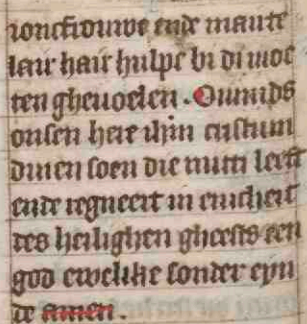 ioncfrouwe ende maute
lair hair hulpe bi di moe
ten gheuoelen. Ouumids
onsen here ihm cristum
dinen soen die mitti leeft
ende regneert in enicheit
des heilighen gheests een
god ewelike sonder eyn
de amen.